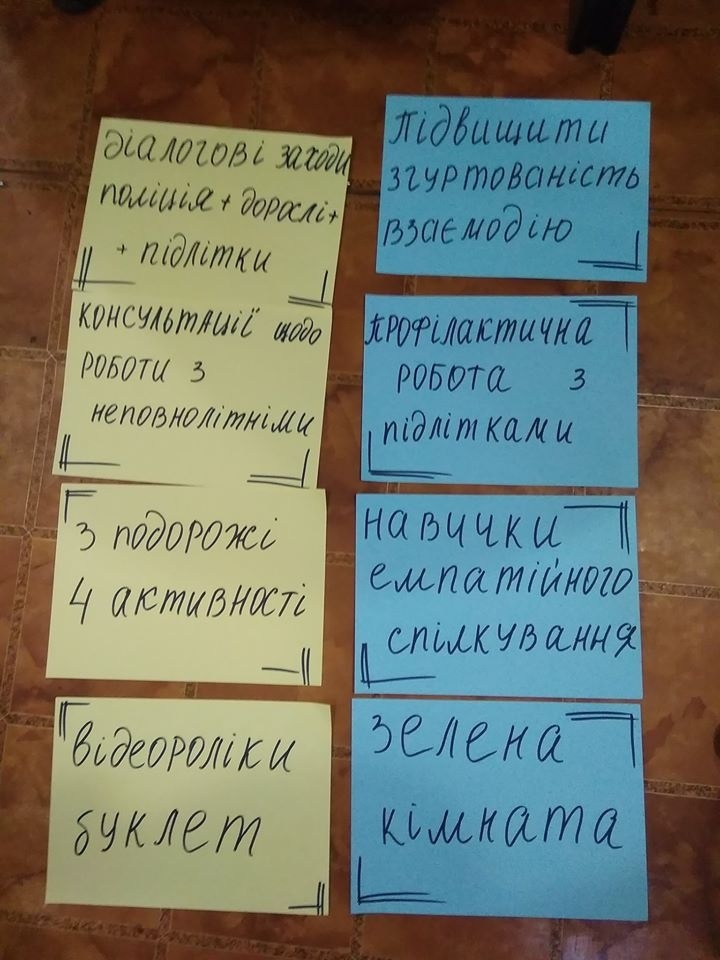 діалогові заходи
поліція + дорослі +
+ підлітки
консультації щодо
роботи з
неповнолітніми
3 подорожі
4 активності
відеороліки
буклет
підвищити
згуртованість
взаємодію
профілактична
робота з
підлітками
навички
емпатійного
спілкування
зелена
кімната